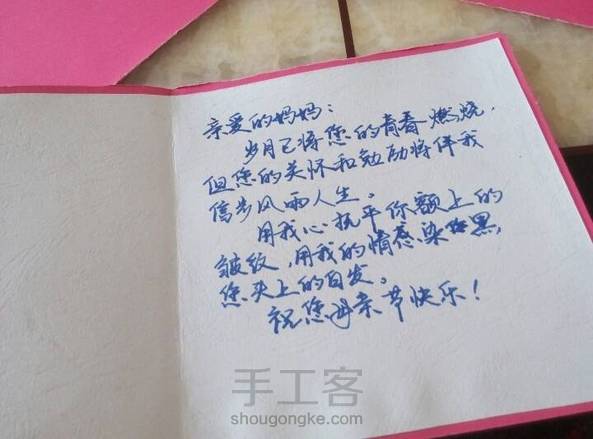 亲爱的妈妈：
岁月已将您的青春燃烧，
但您的关怀和勉励将伴我
信步风雨人生。
用我心抚平你额上的
皱纹，用我的情感染黑
您头上的白发。
祝您母亲节快乐！
手工客
shougongke.com